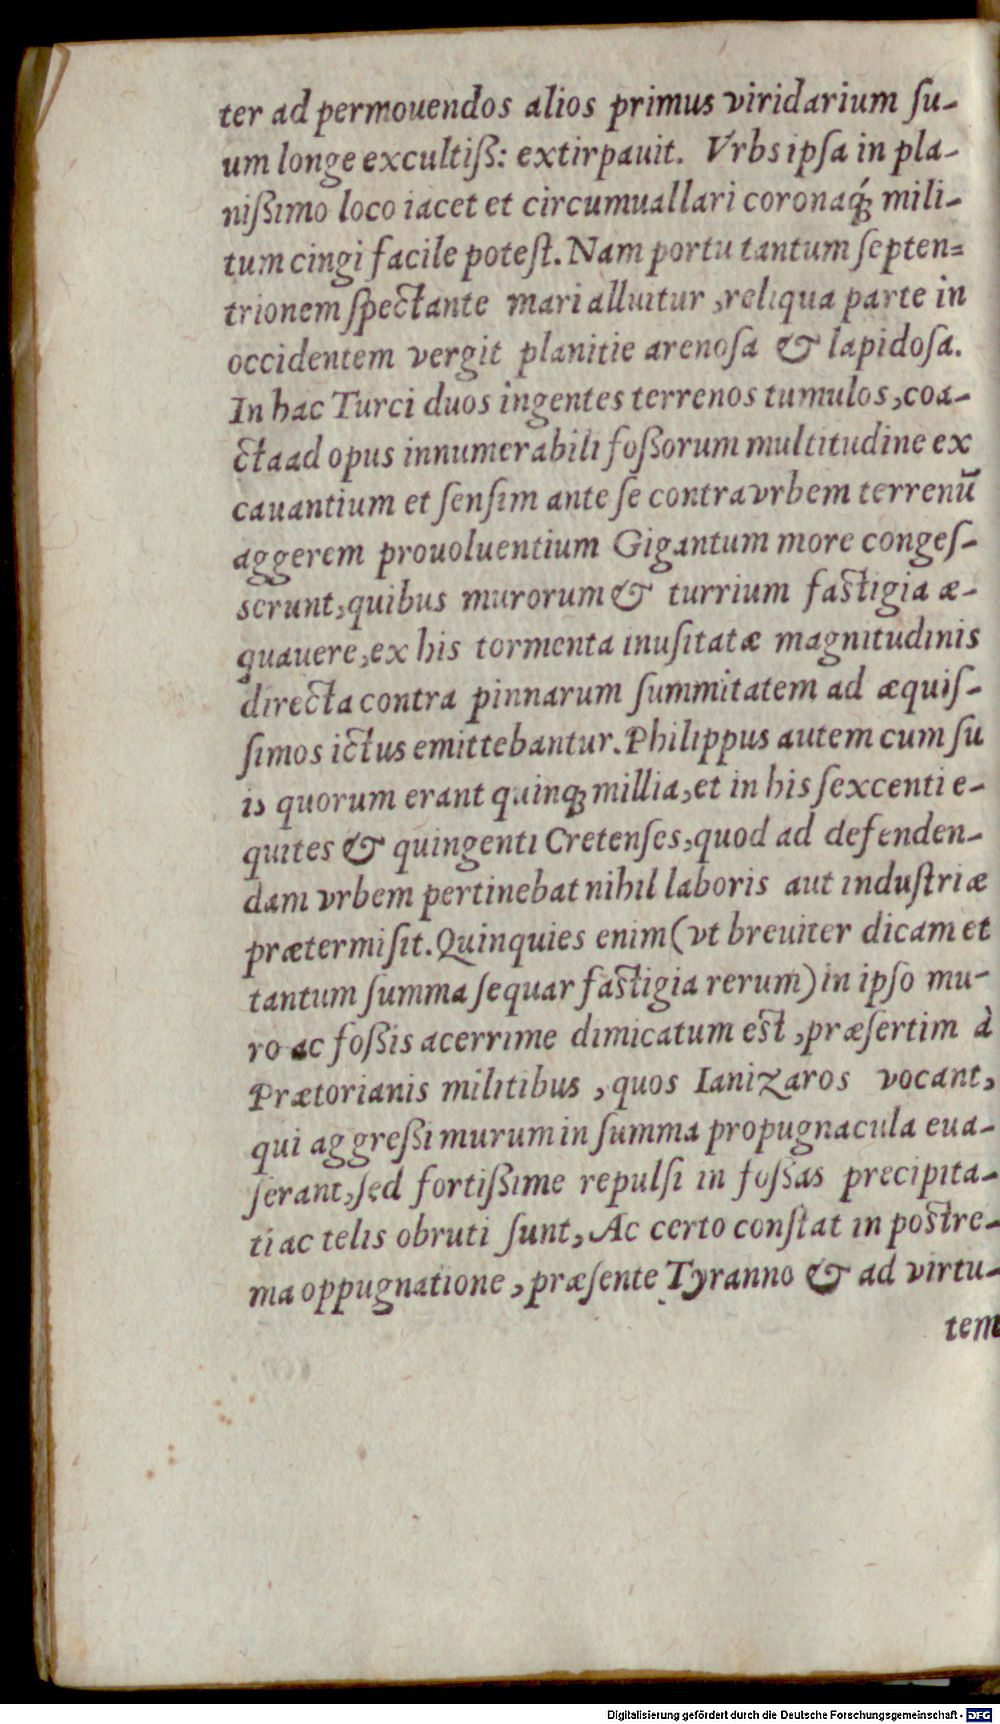 ter ad permouendos alios primus viridarium ſu-
um longe excultiß: extirpauit. Vrbs ipſa in pla-
nißimo loco iacet et circumuallari coronaq́; mili-
tum cingi facile poteſt. Nam portu tantum ſepten=
trionem ſpectante mari alluitur, reliqua parte in
occidentem vergit planitie arenoſa & lapidoſa.
In hac Turci duos ingentes terrenos tumulos, coa-
cta ad opus innumerabili foßorum multitudine ex
cauantium et ſenſim ante ſe contra vrbem terrenū
aggerem prouoluentium Gigantum more congeſ-
serunt, quibus murorum & turrium faſtigia æ-
quauere, ex his tormenta inuſitatæ magnitudinis
directa contra pinnarum ſummitatem ad æquiſ-
ſimos ictus emittebantur. Philippus autem cum ſu
is quorum erant quinq; millia, et in his ſexcenti e-
quites & quingenti Cretenſes, quod ad defenden-
dam vrbem pertinebat nihil laboris aut induſtriæ
prætermiſit. Quinquies enim (vt breuiter dicam et
tantum ſumma ſequar faſtigia rerum) in ipſo mu-
ro ac foßis acerrime dimicatum eſt, præſertim à
Prætorianis militibus, quos Ianizaros vocant,
qui aggreßi murum in ſumma propugnacula eua-
ſerant, ſed fortißime repulſi in foſsas precipita-
ti ac telis obruti ſunt, Ac certo conſtat in poſtre-
ma oppugnatione, præſente Tyranno & ad virtu-
tem
Digitalisierung gefördert durch die Deutsche Forschungsgemeinschaft - DFG